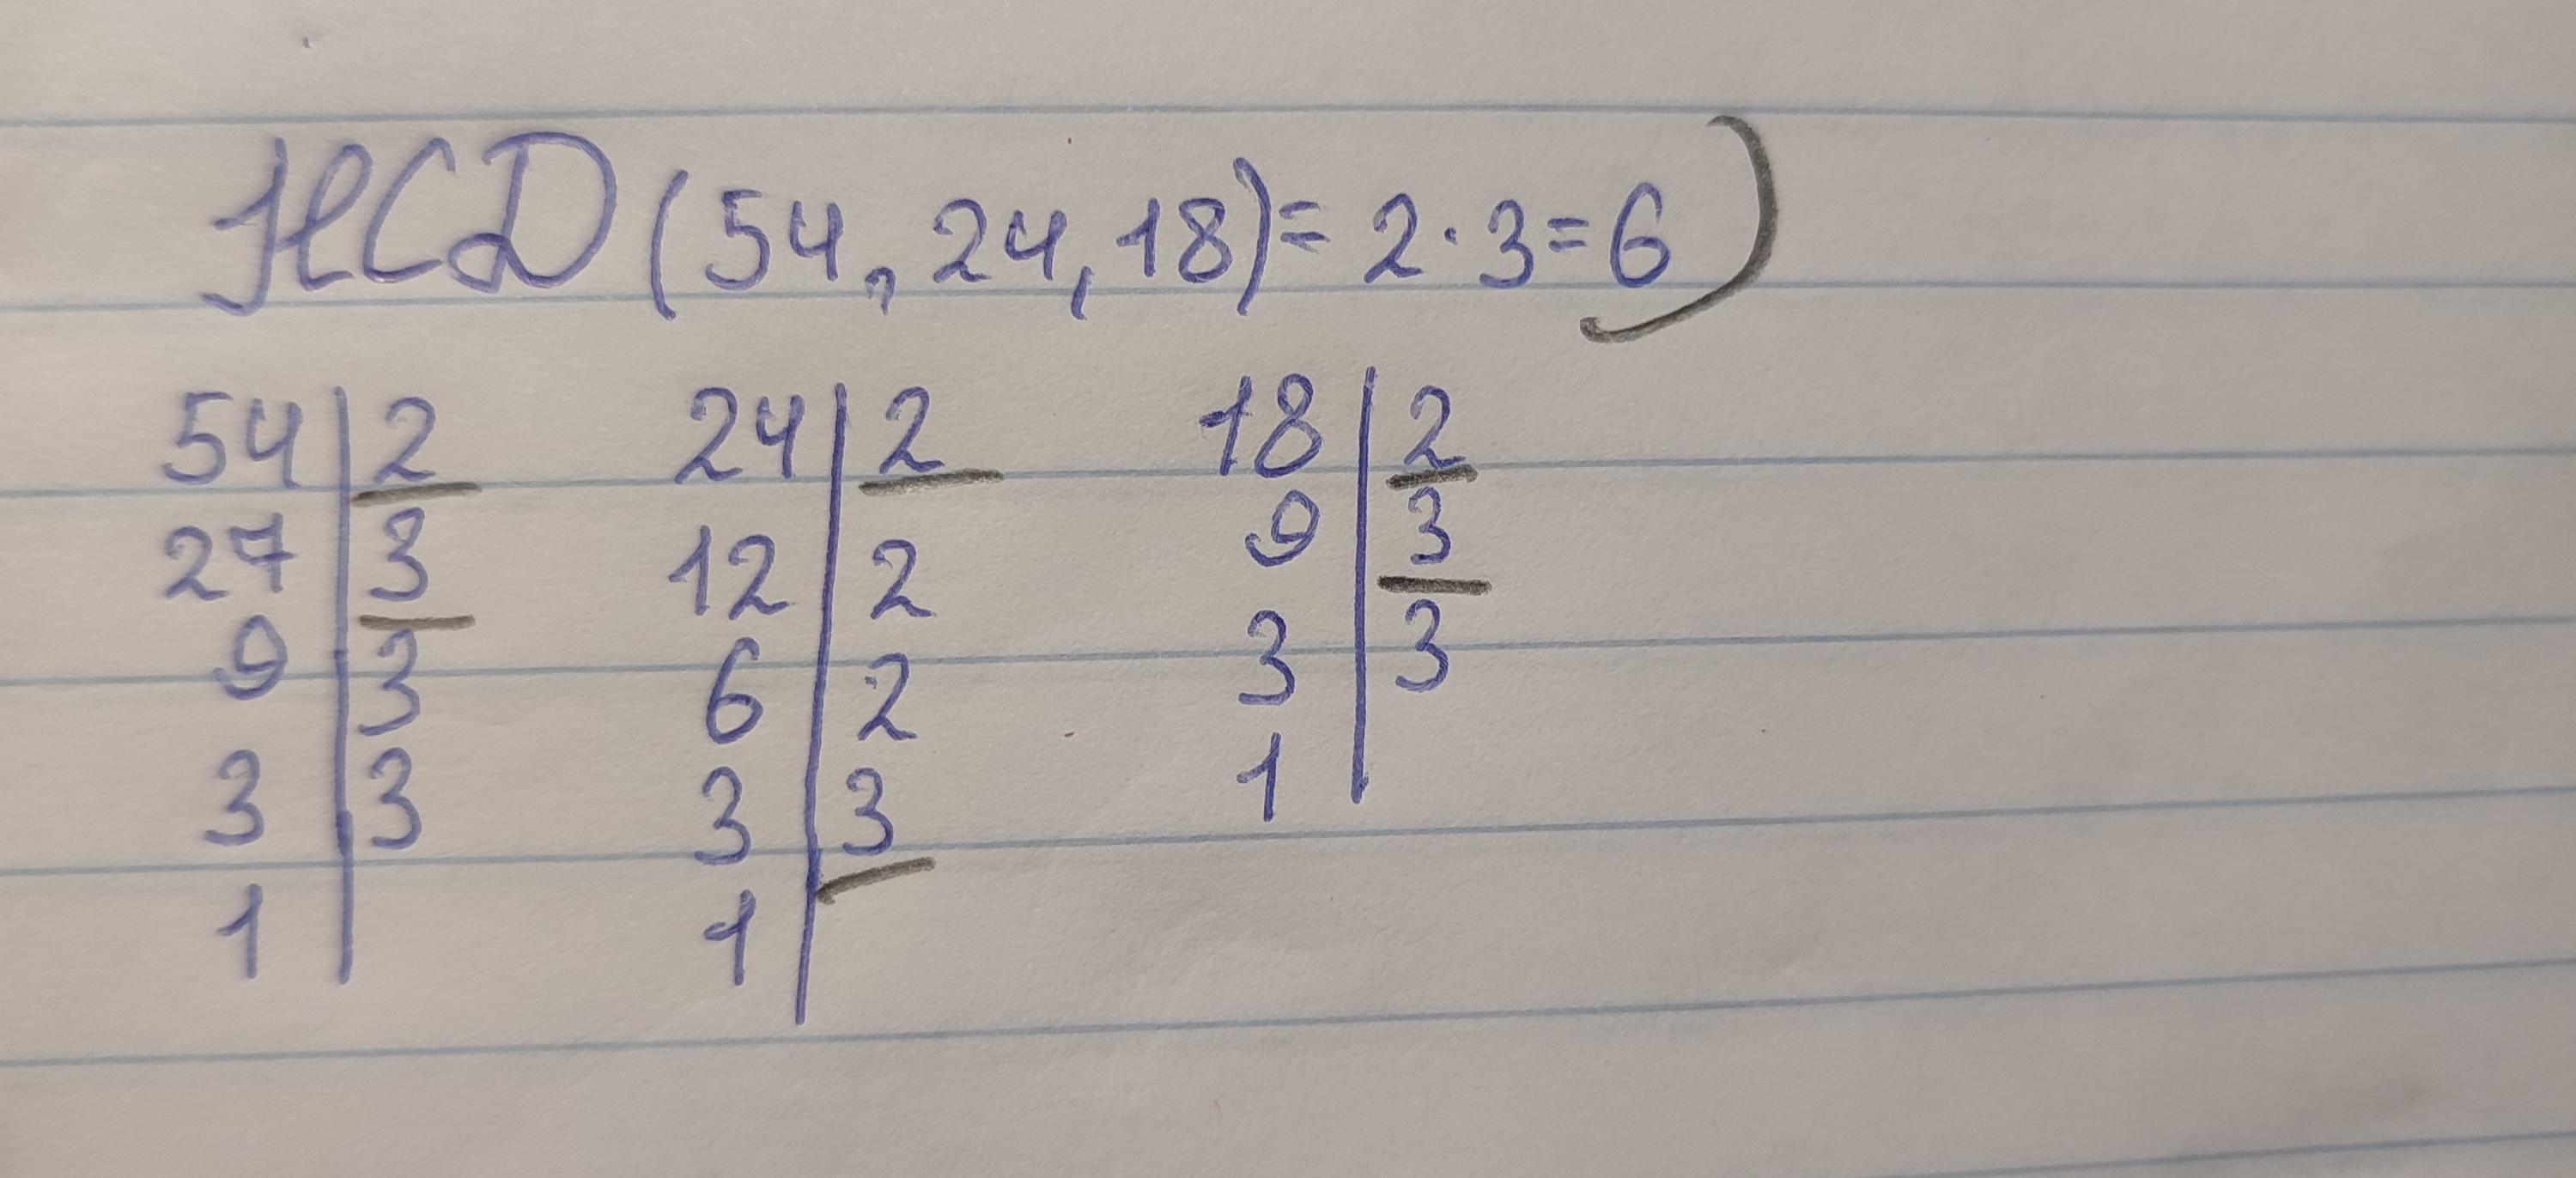 НСД (54, 24, 18) = 2 · 3 = 6
54 | 2
27 | 3
9 | 3
3 | 3
1
24 | 2
12 | 2
6 | 2
3 | 3
1
18 | 2
9 | 3
3 | 3
1